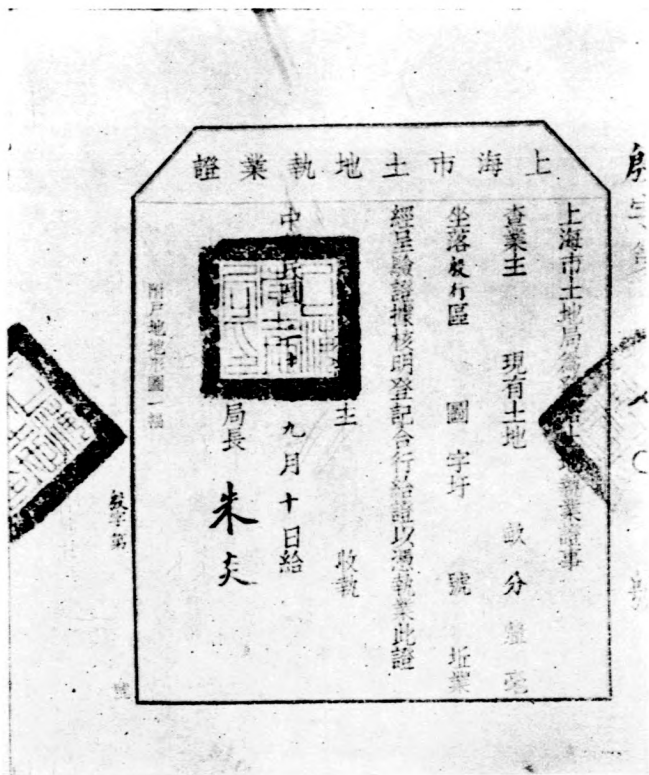 上海市土地執業證
上海市土地局為發給土地執業證事
查業主 現有土地 畝 分 釐 毫
坐落殷行區 圖 字圩 號 坵業
經呈驗證據核明登記合行給證以憑執業此證
主 收執
中 九月十日給
局長 朱炎
附戶地地形圖一幅
殷字第 號